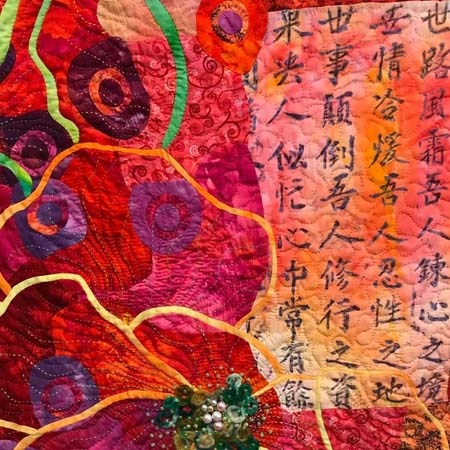 世路風霜吾人鍊心之境
世情冷煖吾人忍性之地
世事顛倒吾人修行之資
果决人似忙心中常有餘